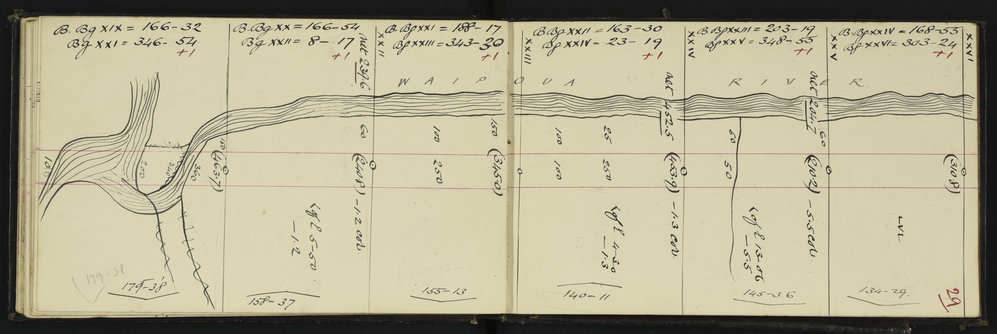 B. Bg XIX = 166-32
Bg XXI = 346-54
+1
B. Bg XX = 166-54
Bg XXII = 8-17
+1
B. Bg XXI = 188-17
Bg XXIII = 343-30
+1
B. Bg XXII = 163-30
Bg XXIV = 23-19
+1
B. Bg XXIII = 203-19
Bg XXV = 348-55
+1
B. Bg XXIV = 168-55
Bg XXVI = 303-24
+1
XXII
XXIII
XXIV
XXV
XXVI
WAIPOUA RIVER
net 452.5
60
100
150
100
25
60
60
100
200
360
250
100
250
50
(463.7)
(345.0)
(453.9)
(310.8)
-1.2 cor
-1.3 cor
-5.5 cor
5-50
-1.2
4-30
-1.3
13-56
-5.5
LVL
179-38
179-38
158-37
155-13
140-11
145-36
134-29
29